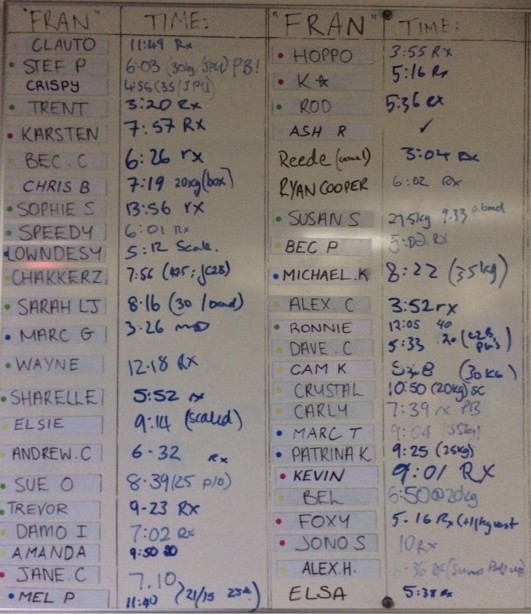 "FRAN" TIME:
CLAUTO 11:49 Rx
STEF P 6:03 (30kg/JPU) PB!
CRISPY 4:56 (35/JPU)
TRENT 3:20 Rx
KARSTEN 7:57 RX
BEC.C 6:26 rx
CHRIS B 7:19 20kg (box)
SOPHIE S 13:56 rx
SPEEDY 6:01 Rx
LOWNDESY 5:12 Scale.
CHAKKERZ 7:56
SARAH LJ 8:16 (30 / band)
MARC G 3:26
WAYNE 12:18 RX
SHARELLE 5:52 rx
ELSIE 9:14 (scaled)
ANDREW.C 6-32 Rx
SUE O 8:39 (25 P/U)
TREVOR 9-23 RX
DAMO I 7:02 Rx
AMANDA 9:50
JANE.C 7.10
MEL P 11:40 21/15
"FRAN" TIME:
HOPPO 3:55 Rx
K☆ 5:16 Rx
ROD 5:36 Rx
ASH R ✓
Reede 3:04 Rx
RYAN COOPER 6:02 Rx
SUSAN S 27.5kg 9.33 band
BEC P 5:02 RX
MICHAEL.K 8:22 (35kg)
ALEX. C 3:52 rx
RONNIE 12:05 40
DAVE. C 5:33
CAM K (30kg)
CRYSTAL 10:50 (20kg) sc
CARLY 7:39 rx PB
MARC T 9:04 (35kg)
PATRINA K 9:25 (25kg)
KEVIN 9:01 RX
BEL 6:50 @ 20kg
FOXY 5.16 Rx
JONO S 10 Rx
ALEX.H.
ELSA 5:38 Rx